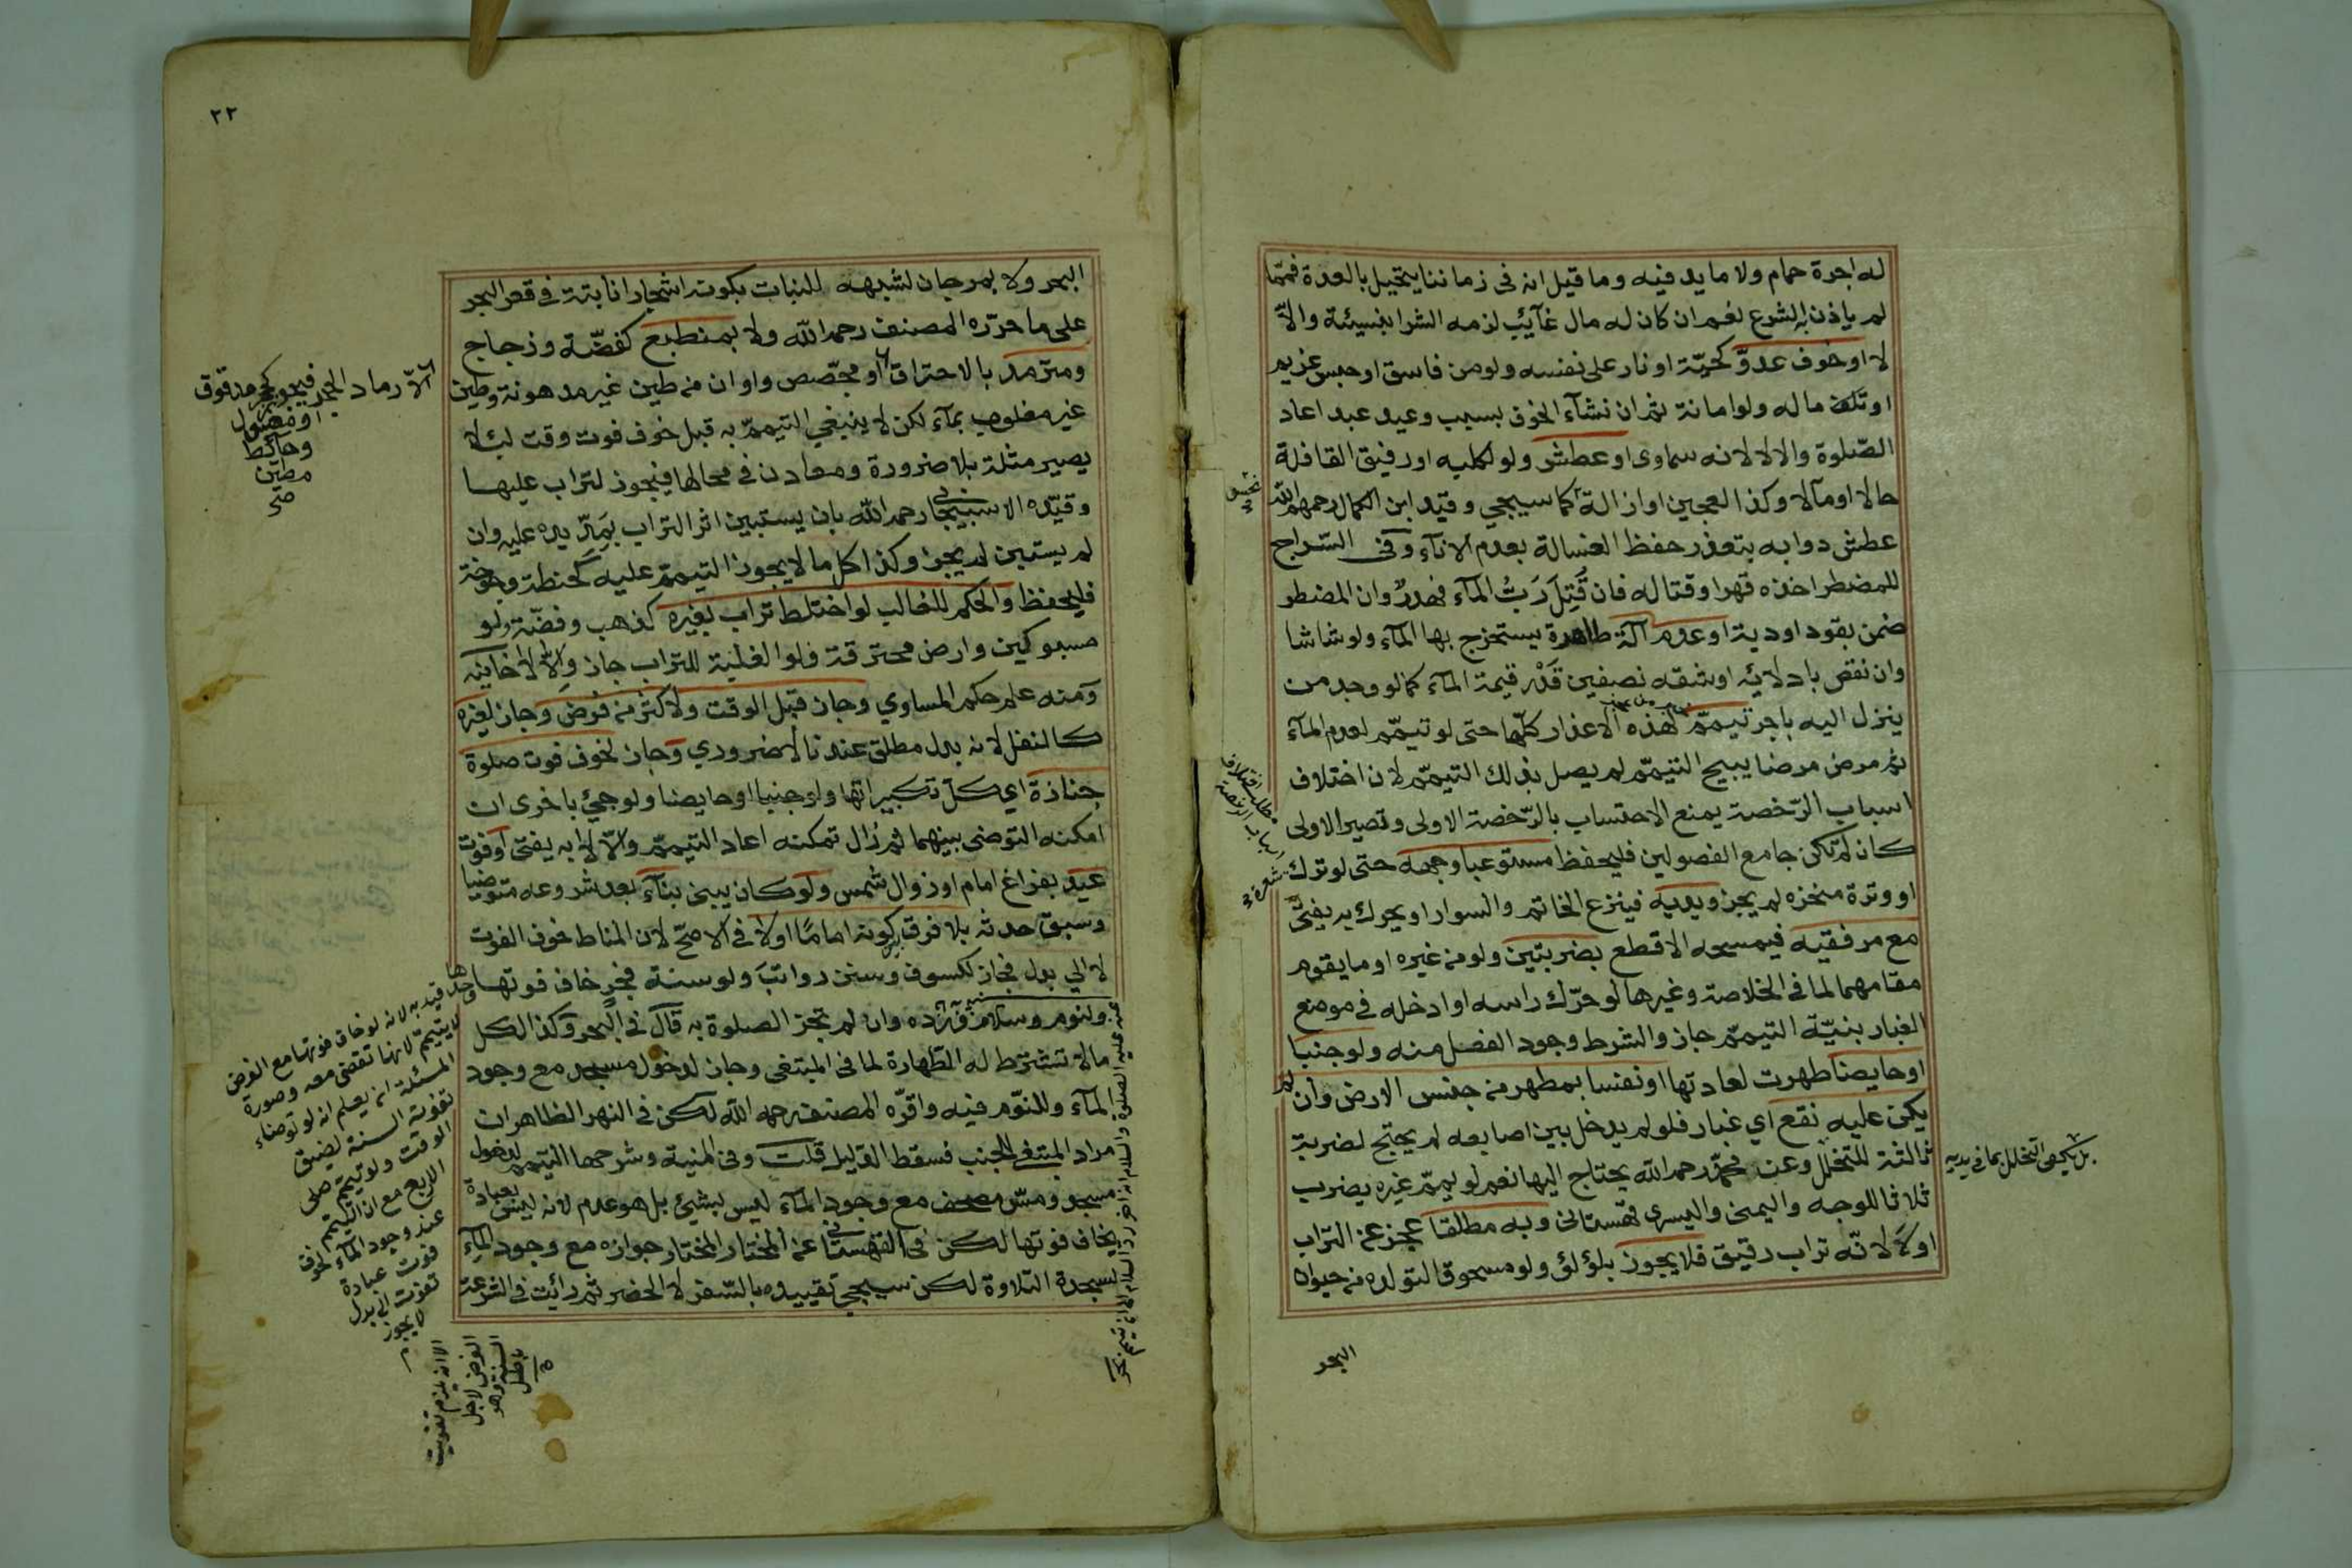 له اجرة حمام ولا ما يدفيه وما قيل انه فى زماننا يتحيل بالعدة فمما
لم ياذن به الشرع نعم ان كان له مال غآئب لزمه الشرا بنسيئة والا
لا او خوف عدو كحية او نار على نفسه ولو من فاسق او حبس غريم
او تلف ماله ولو امانة ثم ان نشاء الخوف بسبب وعيد عبد اعاد
الصلوة والا لا لانه سماوى او عطش ولو لكلبه او رفيق القافلة
حالا او مآلا وكذا العجين او ازالة كما سيجي وقيد ابن الكمال رحمهم الله
عطش دوابه بتعذر حفظ الغسالة بعدم الانآء وفى السراج
للمضطر اخذه قهرا وقتاله فان قتل رب المآء فهدر وان المضطر
ضمن بقود او دية او عدم آلة طاهرة يستخرج بها المآء ولو شاشا
وان نقص بادلائه او شقه نصفين قدر قيمة المآء كما لو وجد من
ينزل اليه باجر تيمم لهذه الاعذار كلها حتى لو تيمم لعدم المآء
ثم مرض مرضا يبيح التيمم لم يصل بذلك التيمم لان اختلاف
اسباب الرخصة يمنع الاحتساب بالرخصة الاولى وتصير الاولى
كان لم تكن جامع الفصولين فليحفظ مستوعبا وجهه حتى لو ترك شعرة
او وترة منخره لم يجز ويديه فينزع الخاتم والسوار او يحرك به يفتى
مع مرفقيه فيمسحه الاقطع بضربتين ولو من غيره او ما يقوم
مقامهما لما فى الخلاصة وغيرها لو حرك راسه او ادخله فى موضع
الغبار بنية التيمم جاز والشرط وجود الفصل منه ولو جنبا
او حايضا طهرت لعادتها او نفسا بمطهر من جنس الارض وان لم
يكن عليه نقع اي غبار فلو لم يدخل بين اصابعه لم يحتج لضربة
ثالثة للتخلل وعن محمد رحمه الله يحتاج اليها نعم لو يمم غيره يضرب
ثلاثا للوجه واليمنى واليسرى قهستانى وبه مطلقا عجز عن التراب
اولا لانه تراب رقيق فلا يجوز بلؤلؤ ولو مسحوقا لتولده من حيوان
البحر
مطلب اختلاف
اسباب الرخصة
بل يكفى التخلل بما فى يديه
٢٢
البحر ولا بمرجان لشبهه للنبات بكونه اشجارا نابتة فى قعر البحر
على ما حرره المصنف رحمه الله ولا بمنطبع كفضة وزجاج
ومترمد بالاحتراق او مجصص واوان من طين غير مدهونة وطين
غير مغلوب بمآء لكن لا ينبغي التيمم به قبل خوف فوت وقت لئلا
يصير مثلة بلا ضرورة ومعادن فى محالها فيجوز لتراب عليها
وقيده الاسبيجابى رحمه الله بان يستبين اثر التراب بمد يده عليه وان
لم يستبين لم يجز وكذا كل ما لا يجوز التيمم عليه كحنطة وجوخة
فليحفظ والحكم للغالب لو اختلط تراب بغيره كذهب وفضة ولو
مسبوكين وارض محترقة فلو الغلبة للتراب جاز والا لا خانية
ومنه علم حكم المساوي وجاز قبل الوقت ولاكثر من فرض وجاز لغيره
كالنفل لانه بدل مطلق عندنا لا ضروري وجاز لخوف فوت صلوة
جنازة اي كل تكبيراتها ولو جنبا او حايضا ولو جئ باخرى ان
امكنه التوضى بينهما ثم زال تمكنه اعاد التيمم والا لا به يفتى او فوت
عيد بفراغ امام او زوال شمس ولو كان يبنى بنآء بعد شروعه متوضيا
وسبق حدثه بلا فرق بين كونه اماما اولا فى الاصح لان المناط خوف الفوت
لا الي بدل فجاز لكسوف وسنن رواتب ولو سنة فجر خاف فوتها وحدها
ولنوم وسلام ورده وان لم تجز الصلوة به قال فى البحر وكذا لكل
مالا تشترط له الطهارة لما فى المبتغى وجاز لدخول مسجد مع وجود
المآء وللنوم فيه واقره المصنف رحمه الله لكن فى النهر الظاهر ان
مراد المبتغى للجنب فسقط الدليل قلت وفى المنية وشرحها التيمم لدخول
مسجد ومس مصحف مع وجود المآء ليس بشيئ بل هو عدم لانه ليس بعبادة
يخاف فوتها لكن فى القهستانى عن المختار المختار جوازه مع وجود المآء
لسجدة التلاوة لكن سيجي تقييده بالسفر لا الحضر ثم رائيت فى الشرعة
الا رماد الحجر فيجوز كحجر مدقوق
او مغسول
وحائط
مطين
صح
قيد به لانه لو خاف فوتها مع الفرض
لا يتيمم لانها تقضى معه وصورة
المسئلة ان يعلم انه لو توضاء
تفوته السنة لضيق
الوقت ولو تيمم صلى
الاربع مع ان التيمم
عند وجود المآء لخوف
فوت عبادة
تفوت الى بدل
لا يجوز
الا انه يلزم تفويت
الفرض لاجل
السنة وهو
باطل